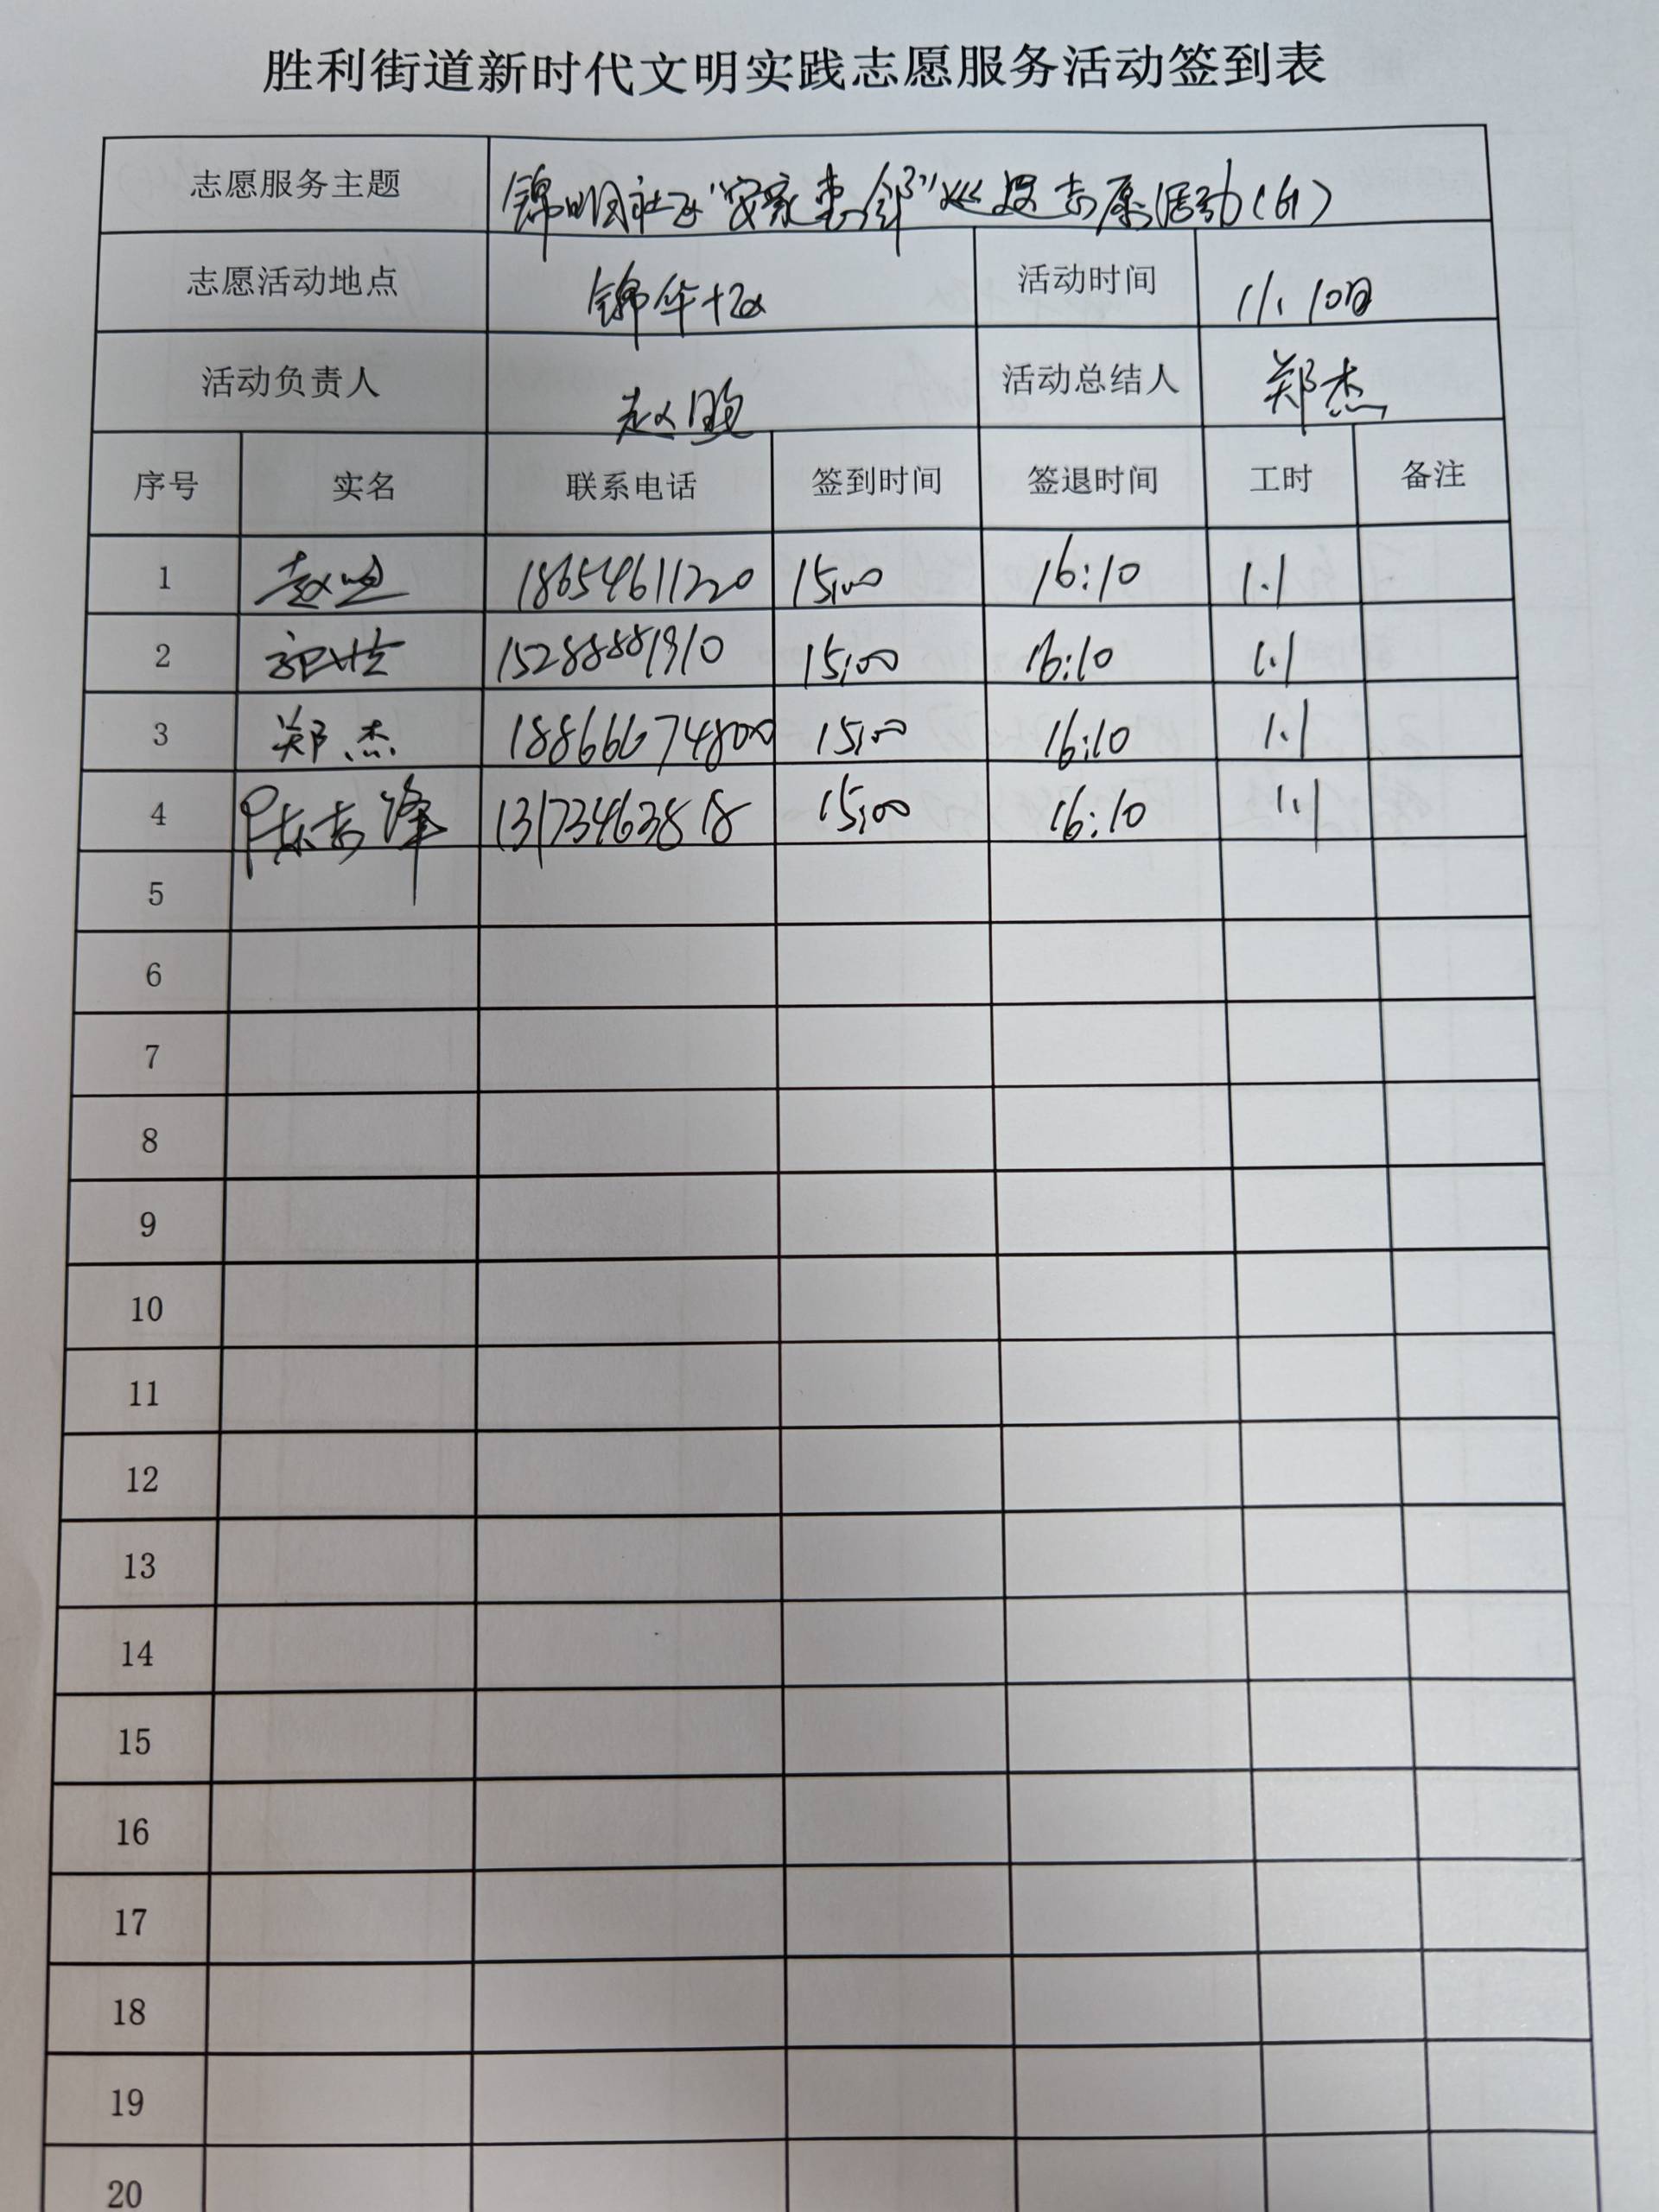 胜利街道新时代文明实践志愿服务活动签到表
志愿服务主题 锦明社区"安家惠邻"巡逻志愿活动(61)
志愿活动地点 锦华十区 活动时间 11.10日
活动负责人 赵 活动总结人 郑杰
序号 实名 联系电话 签到时间 签退时间 工时 备注
1 赵 18654611220 15:00 16:10 1.1
2 15288881910 15:00 16:10 1.1
3 郑杰 18866674800 15:00 16:10 1.1
4 陈志峰 13173463818 15:00 16:10 1.1
5
6
7
8
9
10
11
12
13
14
15
16
17
18
19
20